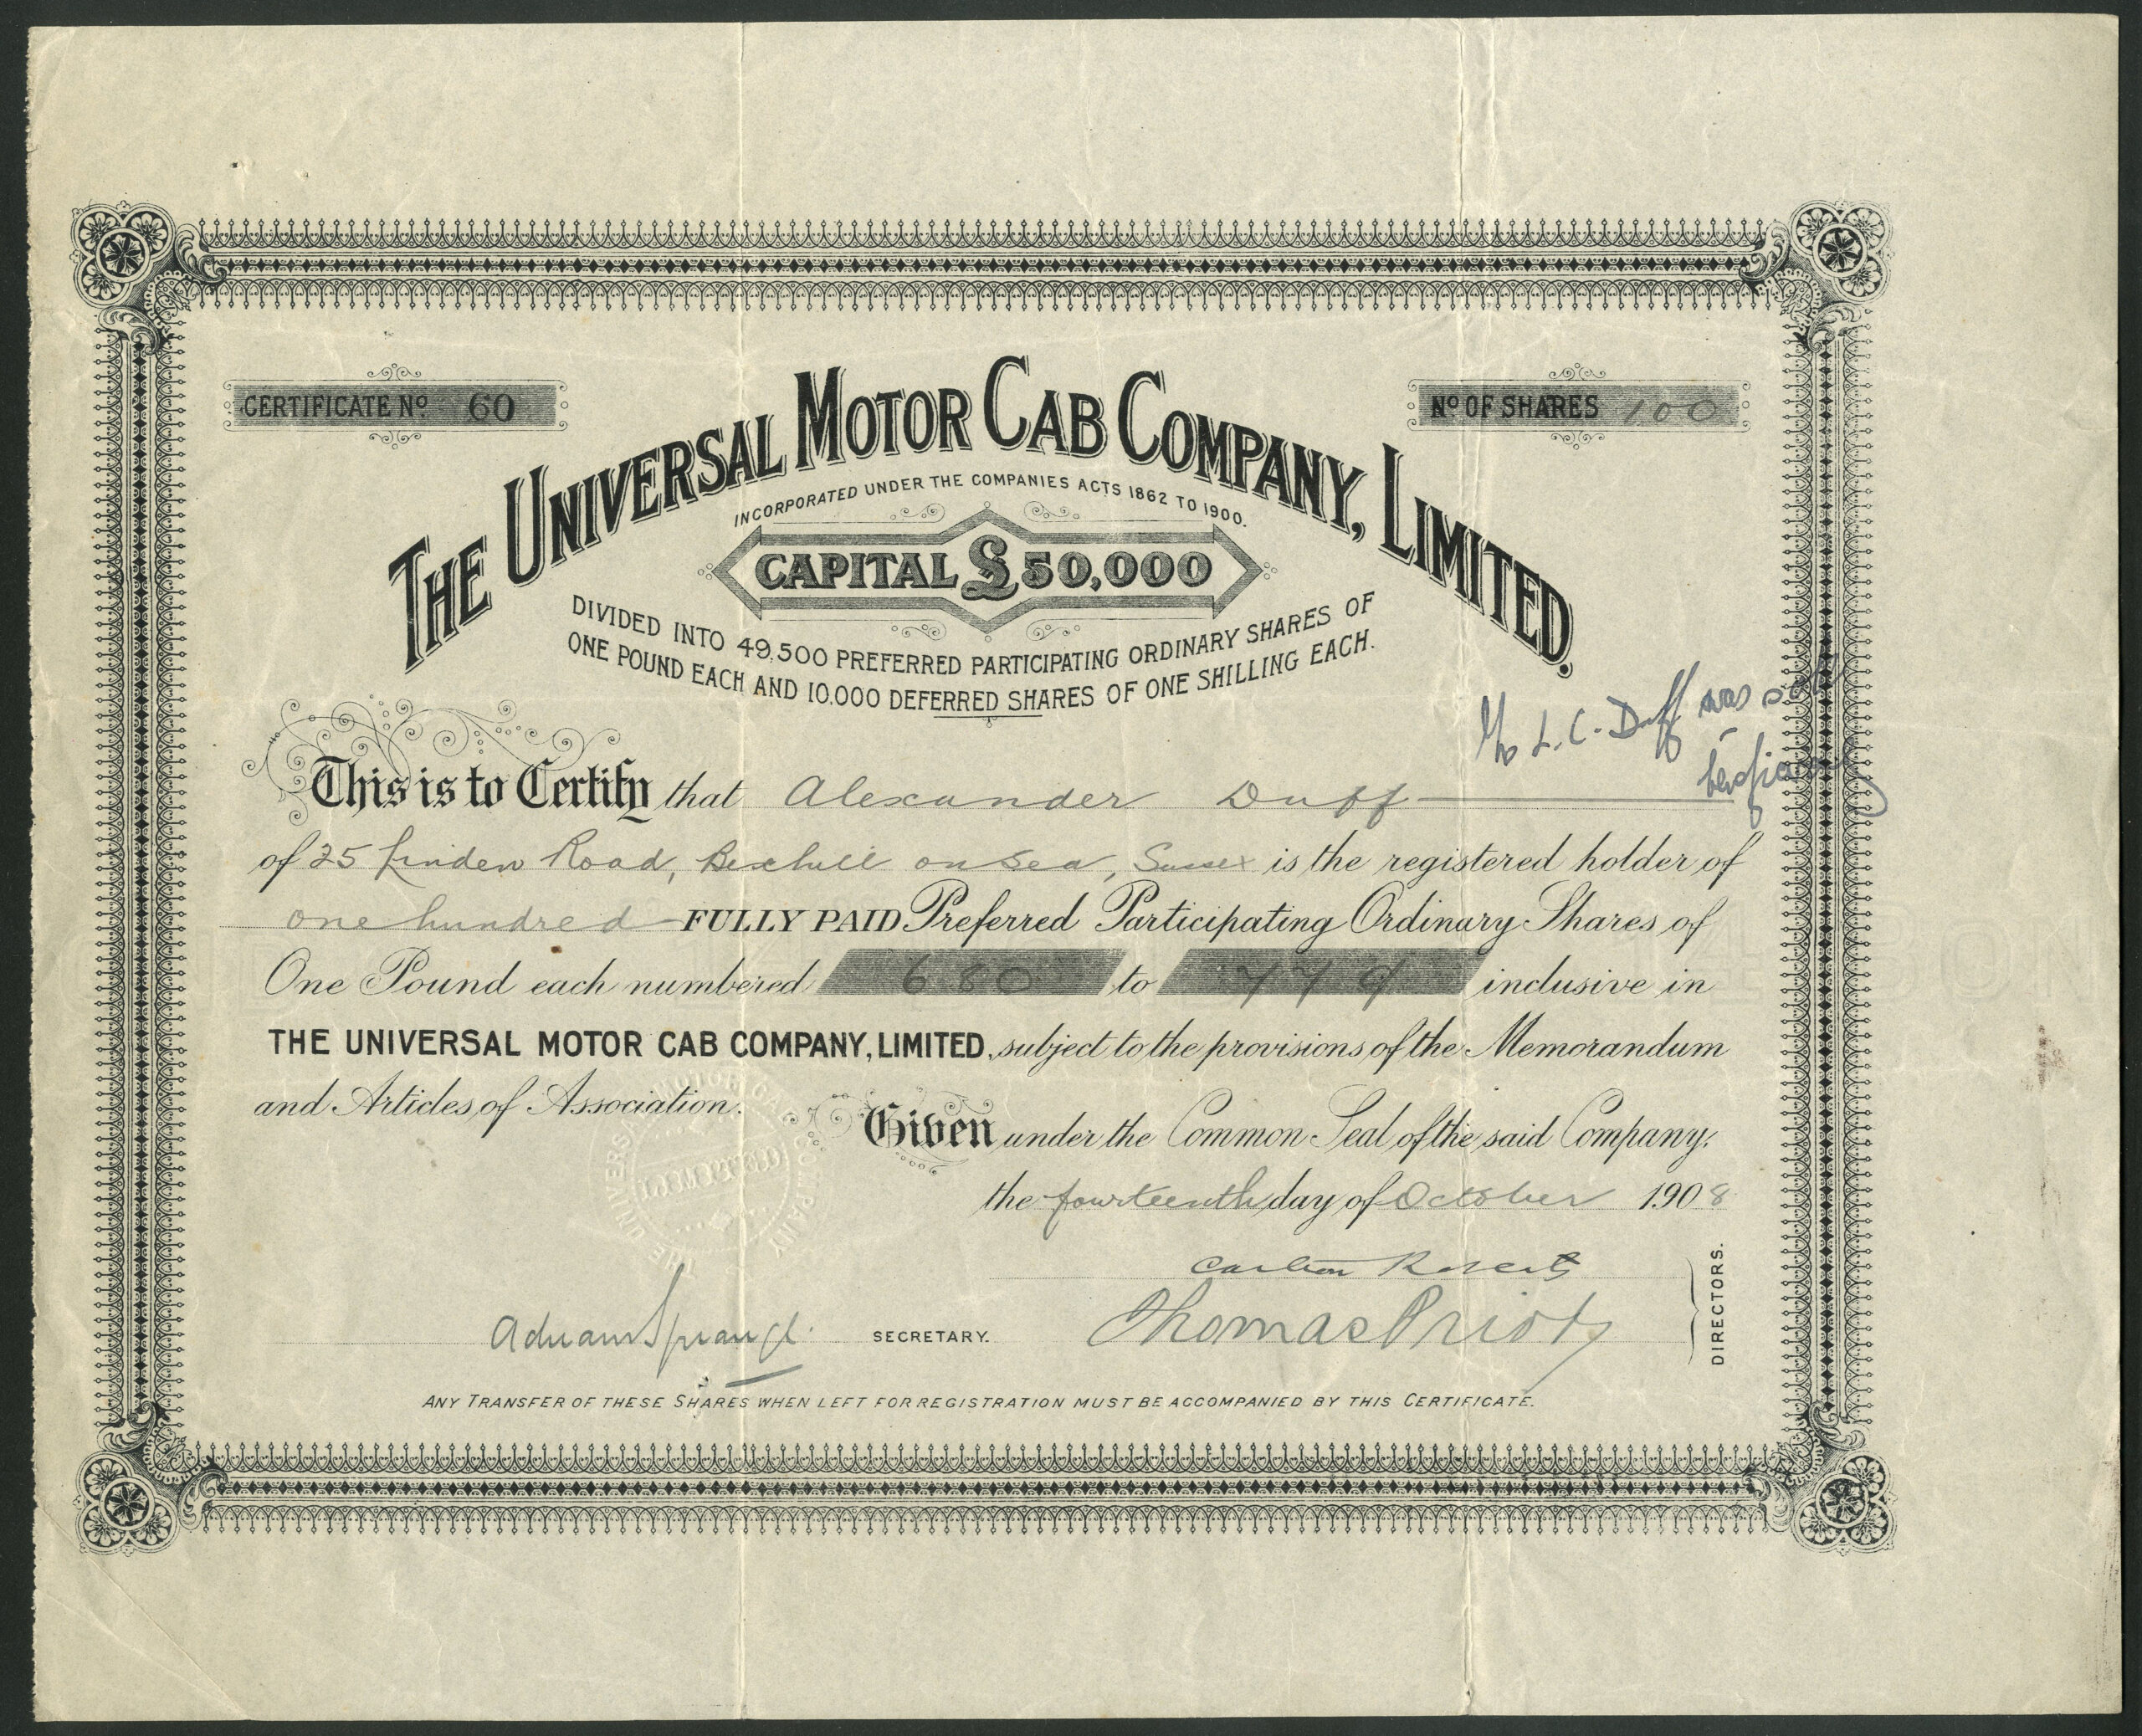 CERTIFICATE No 60
No OF SHARES 100
THE UNIVERSAL MOTOR CAB COMPANY, LIMITED.
INCORPORATED UNDER THE COMPANIES ACTS 1862 TO 1900.
CAPITAL £50,000
DIVIDED INTO 49,500 PREFERRED PARTICIPATING ORDINARY SHARES OF
ONE POUND EACH AND 10,000 DEFERRED SHARES OF ONE SHILLING EACH.
L. C. Duff was
This is to Certify that Alexander Duff
of 25 Linden Road, Bexhill on Sea, Sussex is the registered holder of
one hundred FULLY PAID Preferred Participating Ordinary Shares of
One Pound each numbered 680 to 779 inclusive in
THE UNIVERSAL MOTOR CAB COMPANY, LIMITED, subject to the provisions of the Memorandum
and Articles of Association.
Given under the Common Seal of the said Company,
the fourteenth day of October 1908
Carlton Roberts
Thomas
SECRETARY.
DIRECTORS.
ANY TRANSFER OF THESE SHARES WHEN LEFT FOR REGISTRATION MUST BE ACCOMPANIED BY THIS CERTIFICATE.
THE UNIVERSAL MOTOR CAB COMPANY
LIMITED